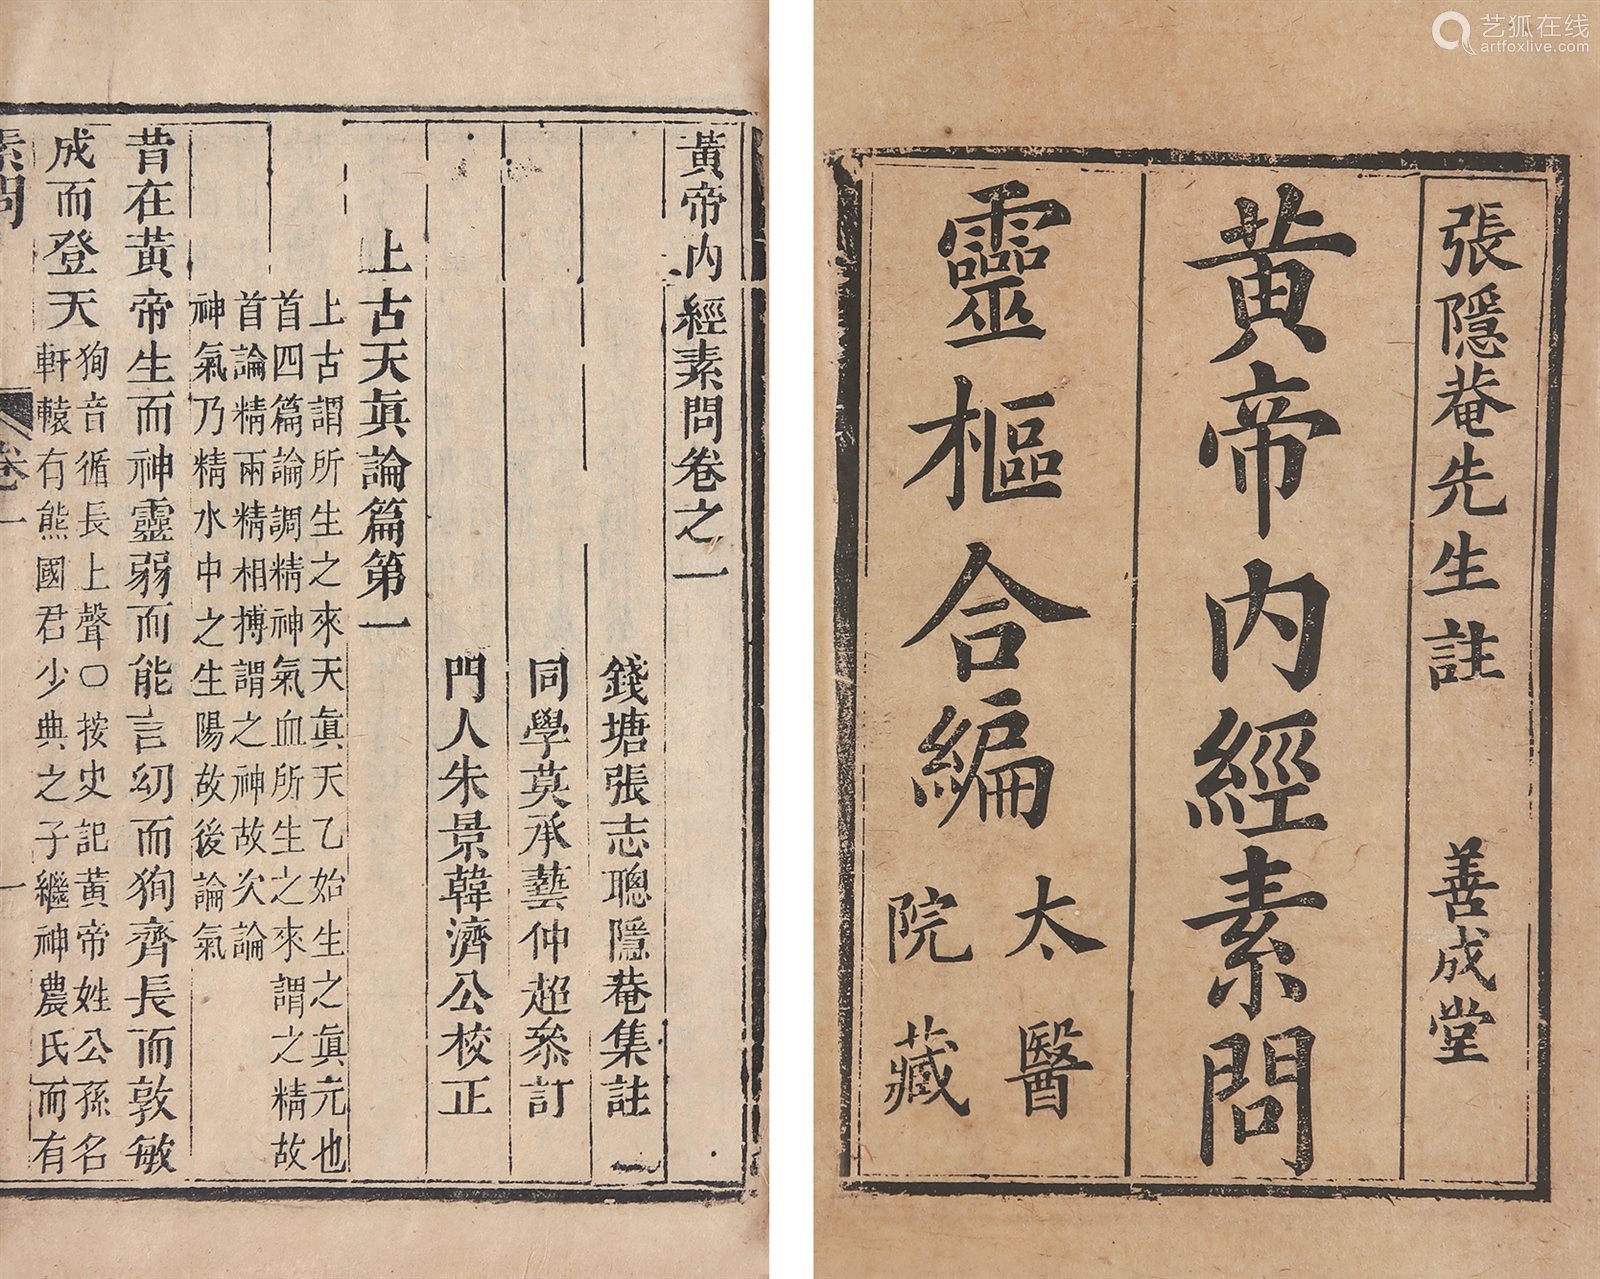 張隱菴先生註 善成堂
黃帝內經素問
靈樞合編 太醫院藏
黃帝內經素問卷之一
錢塘張志聰隱菴集註
同學莫承藝仲超叅訂
門人朱景韓濟公校正
上古天眞論篇第一
上古謂所生之來天眞天乙始生之眞元也
首四篇論調精神氣血所生之來謂之精故
首論精兩精相搏謂之神故次論
神氣乃精水中之生陽故後論氣
昔在黃帝生而神靈弱而能言幼而狥齊長而敦敏
成而登天
狥音循長上聲○按史記黃帝姓公孫名
軒轅有熊國君少典之子繼神農氏而有
素問 卷一 一
艺狐在线
artfoxlive.com